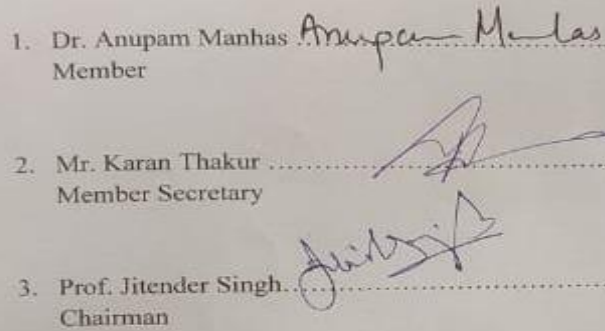 1. Dr. Anupam Manhas ........ Anupam Manhas
Member
2. Mr. Karan Thakur ........................
Member Secretary
3. Prof. Jitender Singh........................
Chairman